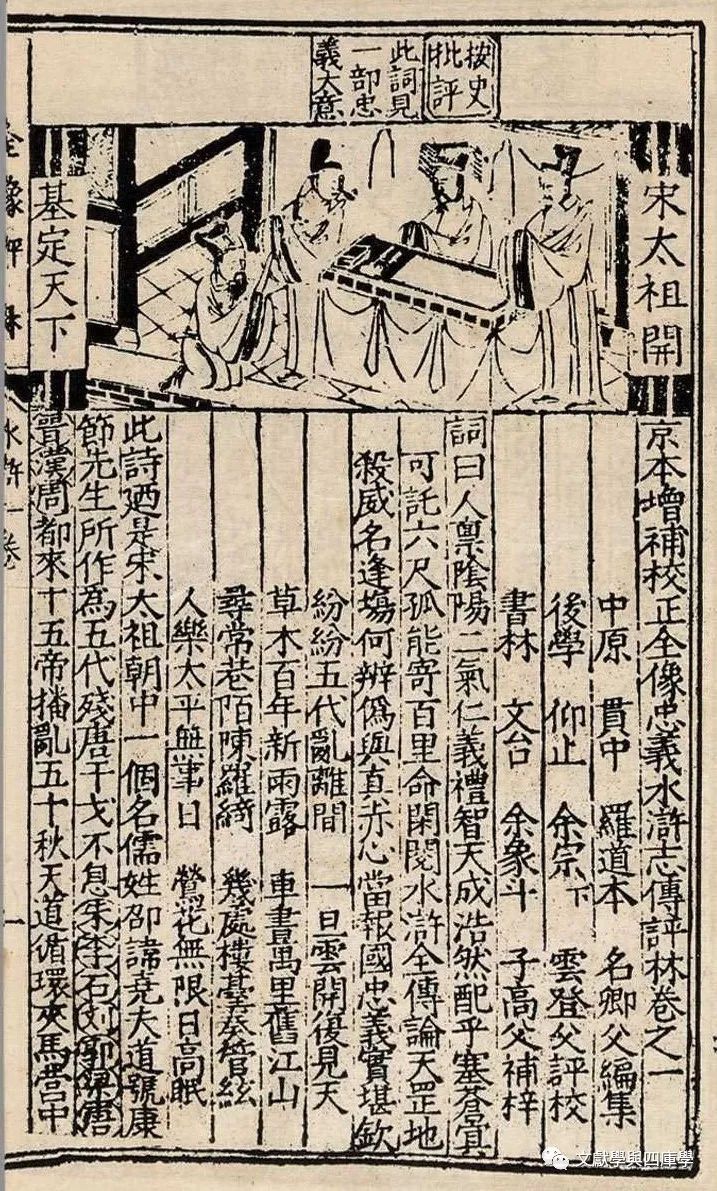 按史
批評
此詞見
一部忠
義大意
宋太祖開
基定天下
京本增補校正全像忠義水滸志傳評林卷之一
中原 貫中 羅道本 名卿父編集
後學 仰止 余宗下 雲登父評校
書林 文台 余象斗 子高父補梓
詞曰人禀陰陽二氣仁義禮智天成浩然配乎塞蒼冥
可託六尺孤能寄百里命閑閱水滸全傳論天罡地
殺威名逢塲何辨僞與真赤心當報國忠義實堪欽
紛紛五代亂離間 一旦雲開復見天
草木百年新雨露 車書萬里舊江山
尋常巷陌陳羅綺 幾處樓臺奏管絃
人樂太平無事日 鶯花無限日高眠
此詩廼是宋太祖朝中一個名儒姓邵諱堯夫道號康
節先生所作為五代殘唐干戈不息朱李石刘郭梁唐
晋漢周都來十五帝播亂五十秋天道循環夾馬营中
全像評林
水滸一卷
一
文獻學與四庫學